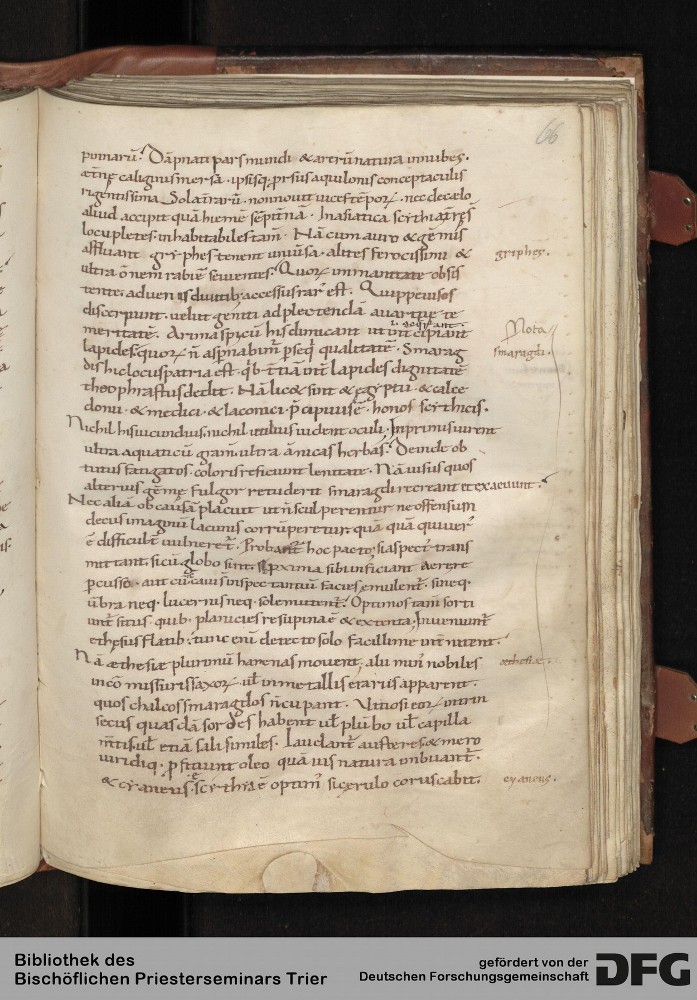 66
pinnarū. Dāpnati pars mundi & a rerū natura in nubes.
ætnę caliginis mersa. ipsisq; prsus aquilonis conceptaculis
rigentissima. Sola t̄rarū. non novit vices tēpoꝝ. nec de cælo
aliud accipit quā hiemē sēpitnā. In asiatica scithia t̄ręs
locupletes. inhabitabiles tam̄. Nā cum auro & gēmis
affluant gryphes tenent univ̄sa. alites ferocissimi &
ultra ōnem rabiē sevientes. Quoꝝ immanitate obsis
tente. advenis divitib; accessus rar̄ est. Quippe visos
discerpunt. velut geniti ad plectendā avaritiæ te
meritatē. Arimaspi cū his dimicant ut int̄cipiant
lapides. quoꝝ n̄ aspnabim̄ p̄seq̄ qualitatē. Smarag
dis hic locus patria est. q̄b; t̄tiā int̄ lapides dignitatē
theophrastus dedit. Nā lic& sint & egyptii & calce
donii. & medici. & laconici. p̄cipuus ē. honos scithicis.
Nichil his iucundius. nichil utilius vident oculi. Inprimis virent
ultra aquaticū gram̄. ultra āmnicas herbas. Deinde ob
tutus fatigatos coloris reficiunt lenitate. Nā visus quos
alterius gēmę fulgor retuderit smaragdi recreant et exacuunt.
Nec aliā ob causā placuit ut n̄ sculperentur. ne offensum
decus imaginū lacunis corrūperetur. quā quā qui ver̄
ē difficult̄ vulneret̄. Probant̄ hoc pacto. si aspect̄ trans
mittant. si cū globo sint. s; pxima sibi inficiant aere re
pcusso. aut cū cavi s inspectantiū facies emulent̄. si neq.
ūbra neq. lucernis neq. sole mutent̄. Optimos tam̄ sorti
unt̄ situs. quib; planicies resupina ē & extenta. Inveniunt̄
ethesus flatib; tunc eni detecto solo facillime int̄nitent.
Nā æthesiæ plurimū harenas movent. alii min̄ nobiles
in cōmissuris saxoꝝ. ul̄ in metallis erarus apparent.
quos chalcos smaragdos n̄cupant. Vitiosi eoꝝ intrin
secus quasdā sordes habent ul̄ plūbo ul̄ capilla
m̄tis ul̄ etiā sali similes. Laudant̄ austeres. & mero
viridiq. p ficiunt oleo quā vis natura imbuant̄.
& cyaneus. scythia ē optim̄ si cęrulo coruscabit.
griphes.
Nota
smaragdi.
æthesiæ.
cyaneus.
Bibliothek des
Bischöflichen Priesterseminars Trier
gefördert von der
Deutschen Forschungsgemeinschaft
DFG